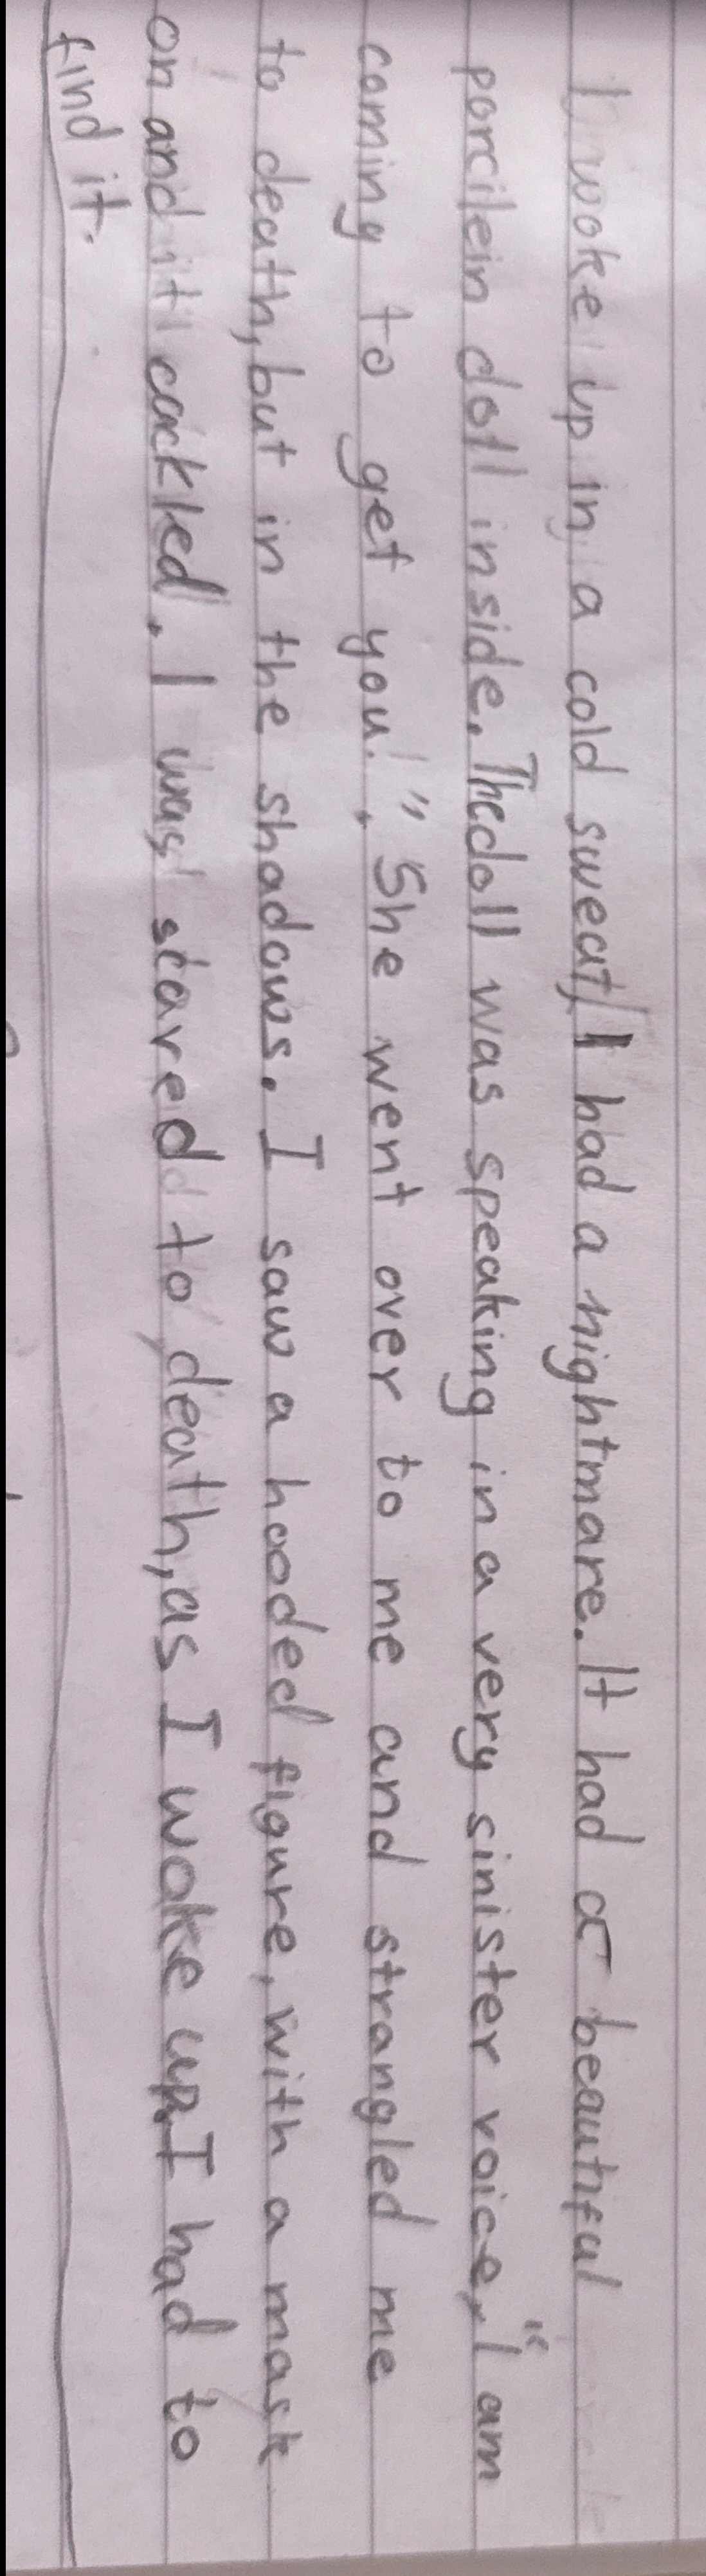 I woke up in a cold sweat, I had a nightmare. It had a beautiful
porcilein doll inside. The doll was speaking in a very sinister voice, "I am
coming to get you!". She went over to me and strangled me
to death, but in the shadows. I saw a hooded figure, with a mask
on and it cackled. I was scared to death, as I woke up. I had to
find it.